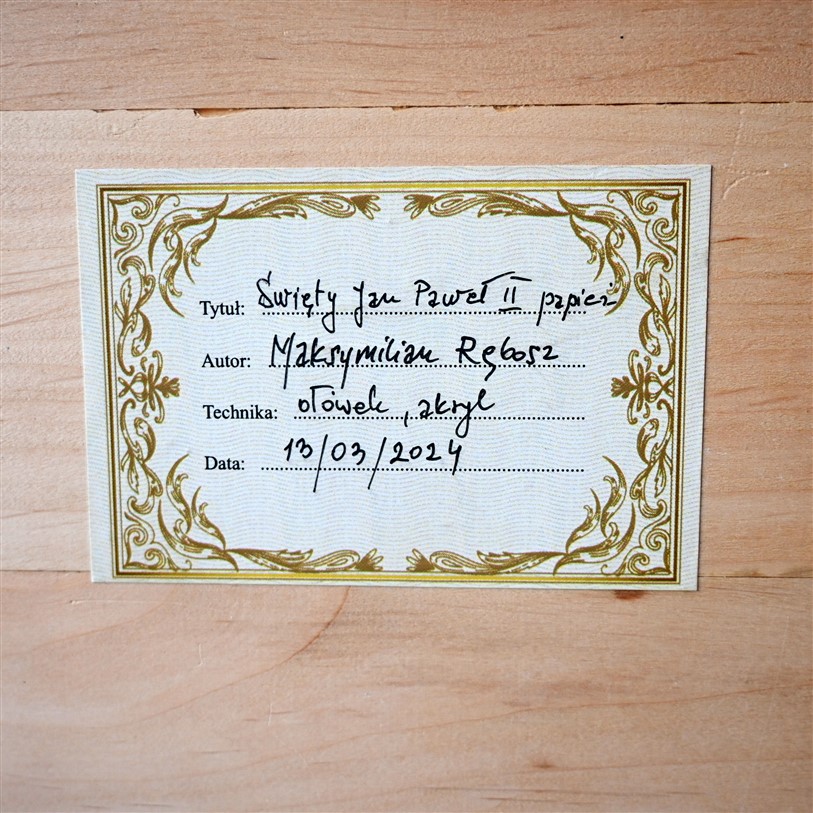 Tytuł: Święty Jan Paweł II papież
Autor: Maksymilian Rębosz
Technika: ołówek, akryl
Data: 13/03/2024